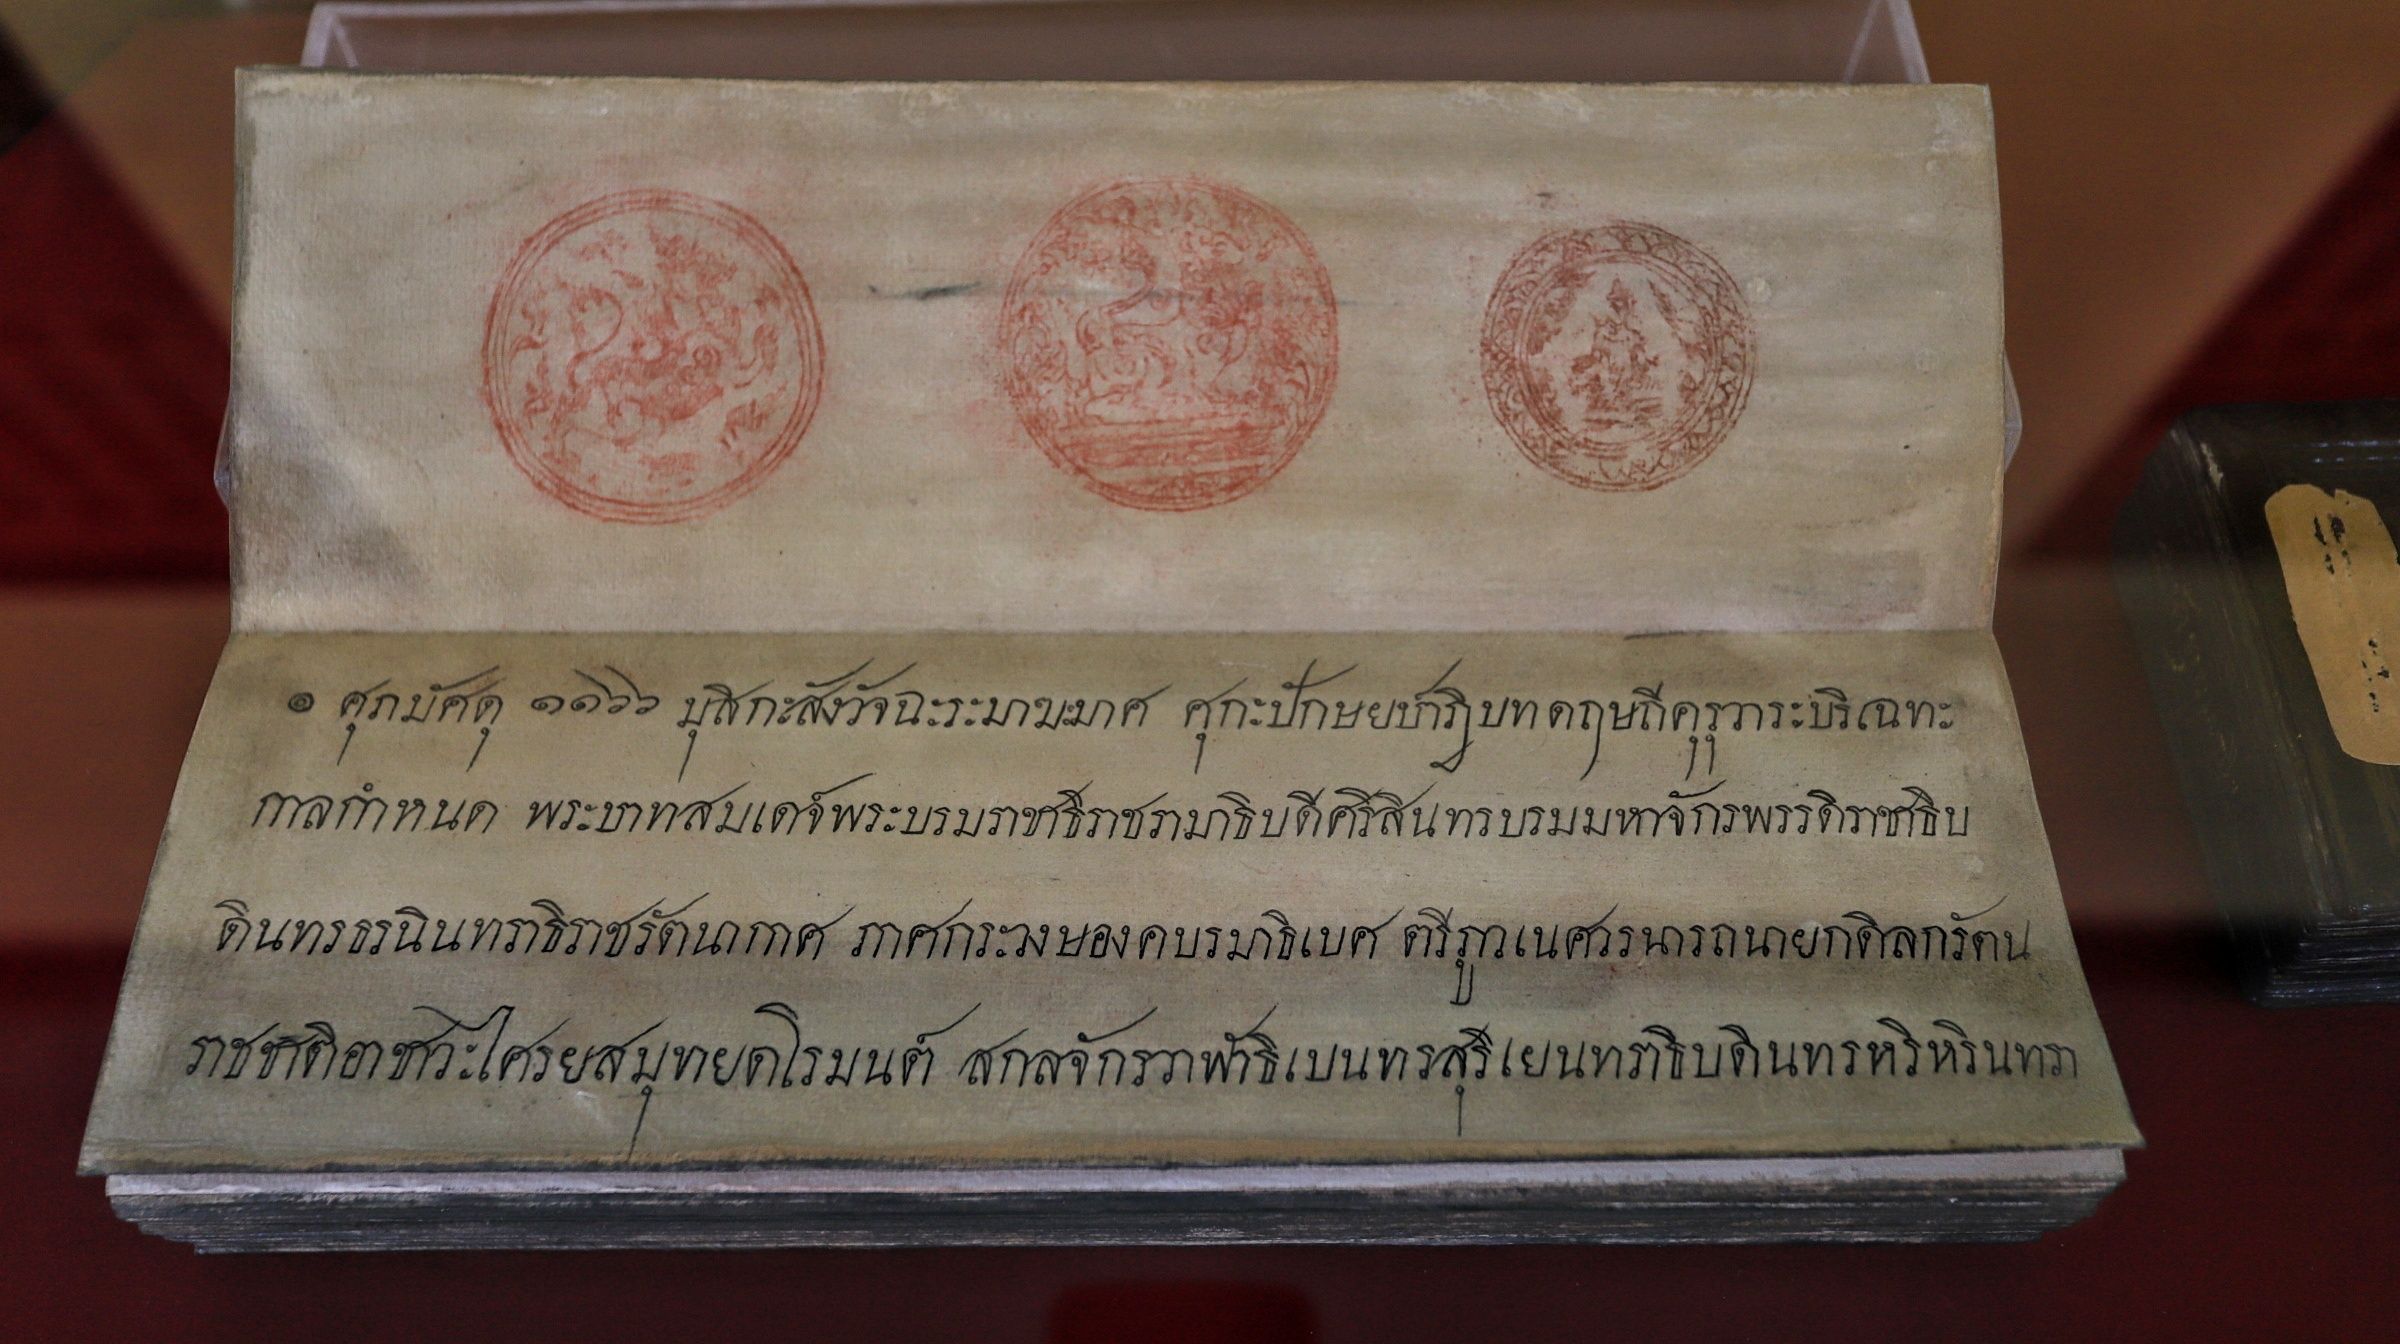 ๏ ศุภมัศดุ ๑๑๖๖ มุสิกะสังวัจฉะระมาฆะมาศ ศุกะปักษยปาฏิบทดฤษถีคุรุวาระบริเฉทะ
กาลกำหนด พระบาทสมเดจ์พระบรมราชาธิราชรามาธิบดีศรีสินทรบรมมหาจักรพรรดิราชาธิบ
ดินทรธรนินทราธิราชรัตนากาศ ภาศกระวงษองคบรมาธิเบศ ตรีภูวเนศวรนารถนายกดิลกรัตน
ราชชาติอาชาวะไศรยสมุทยดโรมนต์ สกลจักรวาฬาธิเบนทรสุริเยนทราธิบดินทรหริหรินทรา